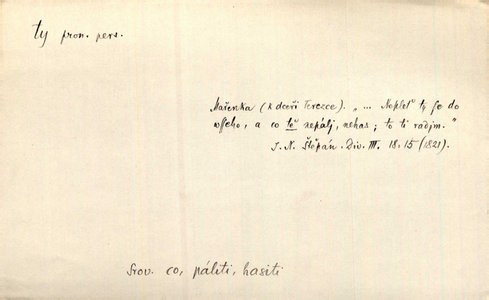 ty pron. pers.
Mařenka (k dceři Terezce). „ ... Nepleť ty se do
wsseho, a co tě nepálj, nehas; to ti radjm."
J. N. Štěpán. Div. III. 18, 15 (1821).
Srov. co, páliti, hasiti